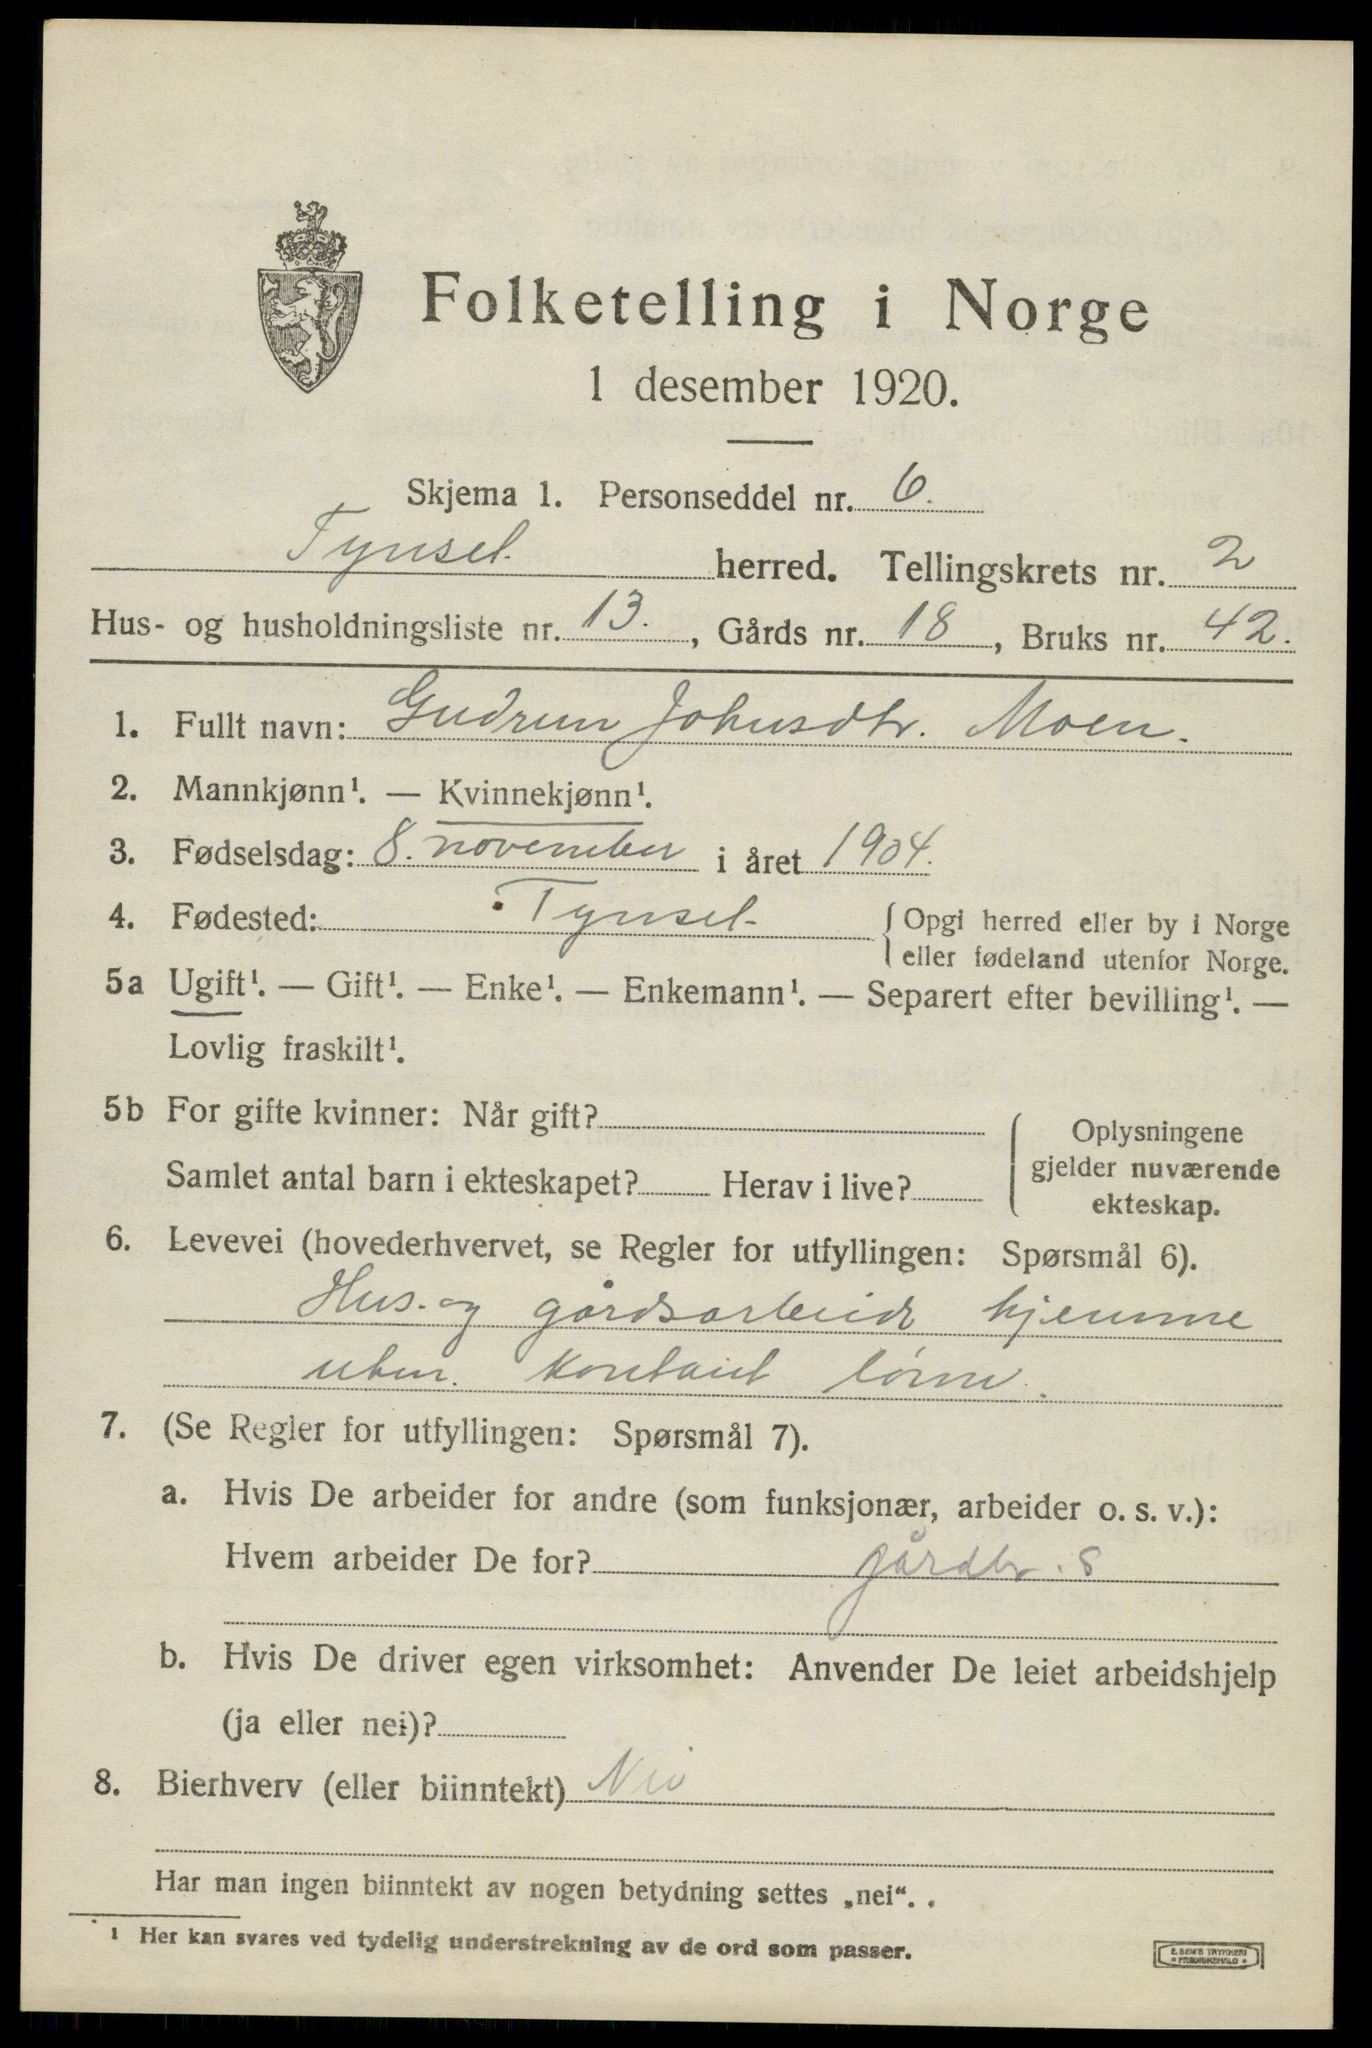 Folketelling i Norge
1 desember 1920.
Skjema 1. Personseddel nr. 6.
Tynset herred. Tellingskrets nr. 2
Hus- og husholdningsliste nr. 13. , Gårds nr. 18 , Bruks nr. 42.
1. Fullt navn: Gudrun Johnsdtr. Moen.
2. Mannkjønn¹. — Kvinnekjønn¹.
3. Fødselsdag: 8. november i året 1904.
4. Fødested: Tynset { Opgi herred eller by i Norge
eller fødeland utenfor Norge.
5a Ugift¹. — Gift¹. — Enke¹. — Enkemann¹. — Separert efter bevilling¹. —
Lovlig fraskilt¹.
5b For gifte kvinner: Når gift?
Samlet antal barn i ekteskapet? Herav i live?
Oplysningene
gjelder nuværende
ekteskap.
6. Levevei (hovederhvervet, se Regler for utfyllingen: Spørsmål 6).
Hus- og gårdsarbeide hjemme
uten kontant lønn.
7. (Se Regler for utfyllingen: Spørsmål 7).
a. Hvis De arbeider for andre (som funksjonær, arbeider o. s. v.):
Hvem arbeider De for? gårdbr. S
b. Hvis De driver egen virksomhet: Anvender De leiet arbeidshjelp
(ja eller nei)?
8. Bierhverv (eller biinntekt) Nei
Har man ingen biinntekt av nogen betydning settes „nei“.
¹ Her kan svares ved tydelig understrekning av de ord som passer.
E. SEM'S TRYKKERI
FREDRIKSHALD